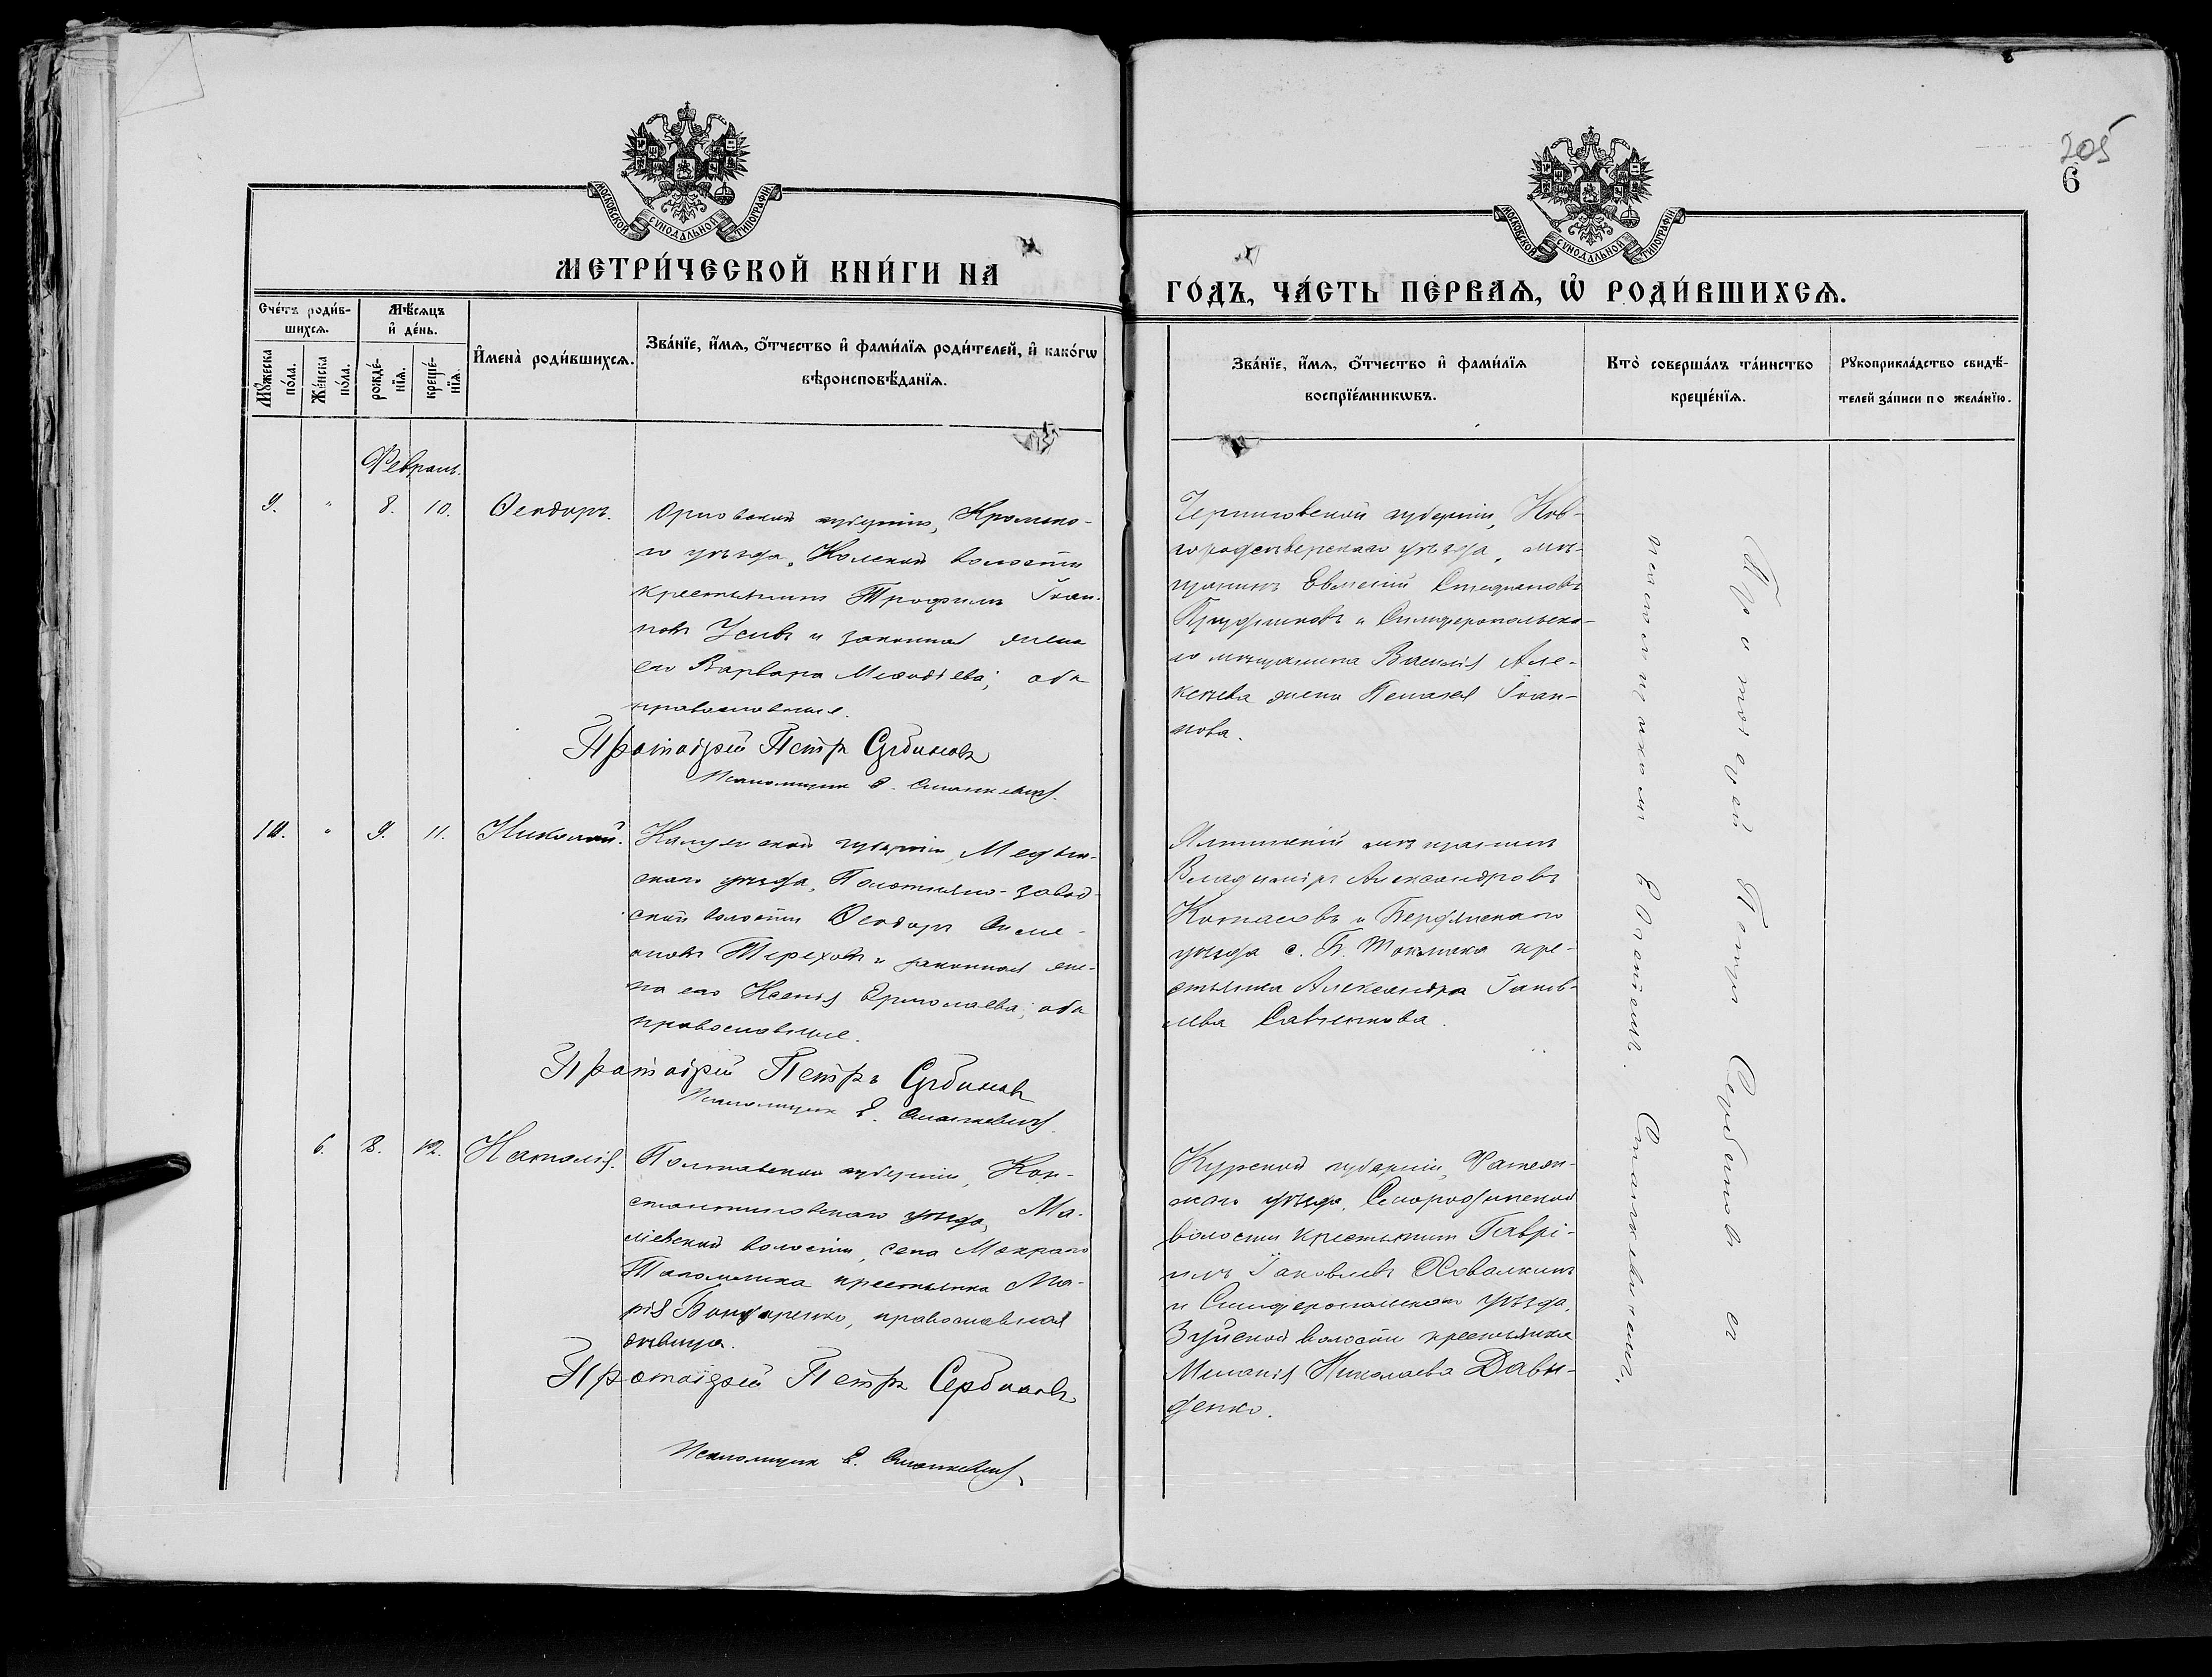 205
6
МОСКОВСКОЙ СѴНОДАЛЬНОЙ ТИПОГРАФІИ
МОСКОВСКОЙ СѴНОДАЛЬНОЙ ТИПОГРАФІИ
МЕТРИ́ЧЕСКОЙ КНИ́ГИ НА
ГО́ДЪ, ЧА́СТЬ ПЕ́РВАѦ, Ѽ РОДИ́ВШИХСѦ.
Сче́тъ роди́в-
шихсѧ.
Мꙋ́жеска
по́ла.
Же́нска
по́ла.
Мѣ́сѧцъ
и҆ де́нь.
рожде́-
нїѧ.
креще́-
нїѧ.
И҆мена̀ роди́вшихсѧ.
Зва́нїе, и҆́мѧ, ѻ҆́тчество и҆ фами́лїѧ роди́телей, и҆ како́гѡ
вѣроисповѣ́данїѧ.
Зва́нїе, и҆́мѧ, ѻ҆́тчество и҆ фами́лїѧ
воспрїе́мникѡвъ.
Кто̀ соверша́лъ та́инство
креще́нїѧ.
Рꙋкоприкла́дство свидѣ́-
телей за́писи по жела́нїю.
Февраль.
9. " 8. 10. Ѳеодоръ.
Орловской губерніи, Кромско-
го уѣзда, волости
крестьянинъ Трофимъ Іоан-
новъ и законная жена
его Варвара Меѳодіева; оба
православные.
Протоіерей Петръ Сербиновъ
Псаломщикъ В. Станкевичъ.
Черниговской губерніи, Нов-
городсѣверскаго уѣзда, мѣ-
щанинъ Евменій Стефановъ
и Симферопольска-
го мѣщанина Василія Але-
ксѣева жена Пелагея Іоан-
нова.
10. " 9. 11. Николай.
Калужской губерніи, Медын-
скаго уѣзда, Полотняно-завод-
ской волости Ѳеодоръ Симе-
оновъ Тереховъ и законная же-
на его Ксенія Ермолаева; оба
православные.
Протоіерей Петръ Сербиновъ
Псаломщикъ В. Станкевичъ.
Ялтинскій мѣщанинъ
Владиміръ Александровъ
и Бердянскаго
уѣзда с. Б. Токмака кре-
стьянка Александра Іаков-
лева Савченкова.
6. 8. 12. Наталія.
Полтавской губерніи, Кон-
стантиновскаго уѣзда, Ма-
ліевской волости, села Мокраго
Тагамлика крестьянка Ма-
рія Бондаренко, православная
дѣвица.
Протоіерей Петръ Сербиновъ
Псаломщикъ В. Станкевичъ.
Курской губерніи, Фатеж-
скаго уѣзда, Смородинской
волости крестьянинъ Гаврі-
илъ Іаковлевъ Ховалкинъ
и Симферопольскаго уѣзда,
Зуйской волости крестьянка
Меланія Николаева Давы-
денко.
Протоіерей Петръ Сербиновъ съ
псаломщикомъ Станкевичемъ.